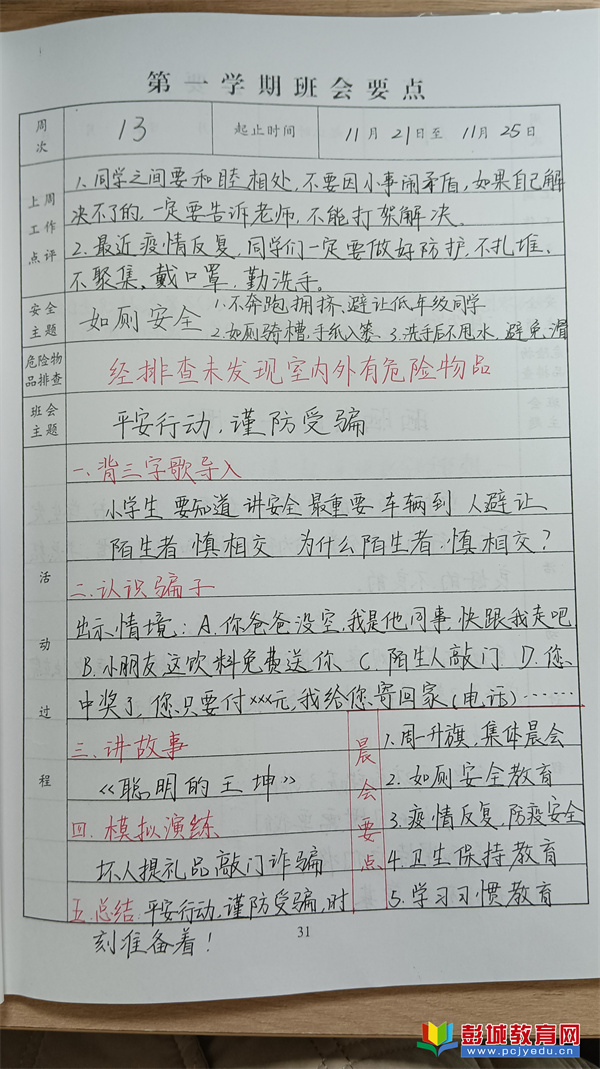 第一学期班会要点
周次 13 起止时间 11月21日至11月25日
上周工作点评
1.同学之间要和睦相处,不要因小事闹矛盾,如果自己解
决不了的,一定要告诉老师,不能打架解决.
2.最近疫情反复,同学们一定要做好防护,不扎堆、
不聚集,戴口罩,勤洗手。
安全主题
如厕安全
1.不奔跑、拥挤、避让低年级同学
2.如厕骑槽,手纸入篓 3.洗手后不甩水,避免滑
危险物品排查
经排查未发现室内外有危险物品
班会主题
平安行动,谨防受骗
活动过程
一.背三字歌导入
小学生 要知道 讲安全 最重要 车辆到 人避让
陌生者 慎相交 为什么陌生者.慎相交?
二.认识骗子
出示情境:A.你爸爸没空,我是他同事,快跟我走吧
B.小朋友这饮料免费送你 C.陌生人敲门 D.您
中奖了,您只要付×××元,我给您寄回家(电话)……
三.讲故事
《聪明的王坤》
四.模拟演练
坏人提礼品敲门诈骗
五.总结.平安行动,谨防受骗,时
刻准备着!
晨会要点
1.周一升旗,集体晨会
2.如厕安全教育
3.疫情反复,防疫安全
4.卫生保持教育
5.学习习惯教育
31
彭城教育网
www.pcjyedu.cn